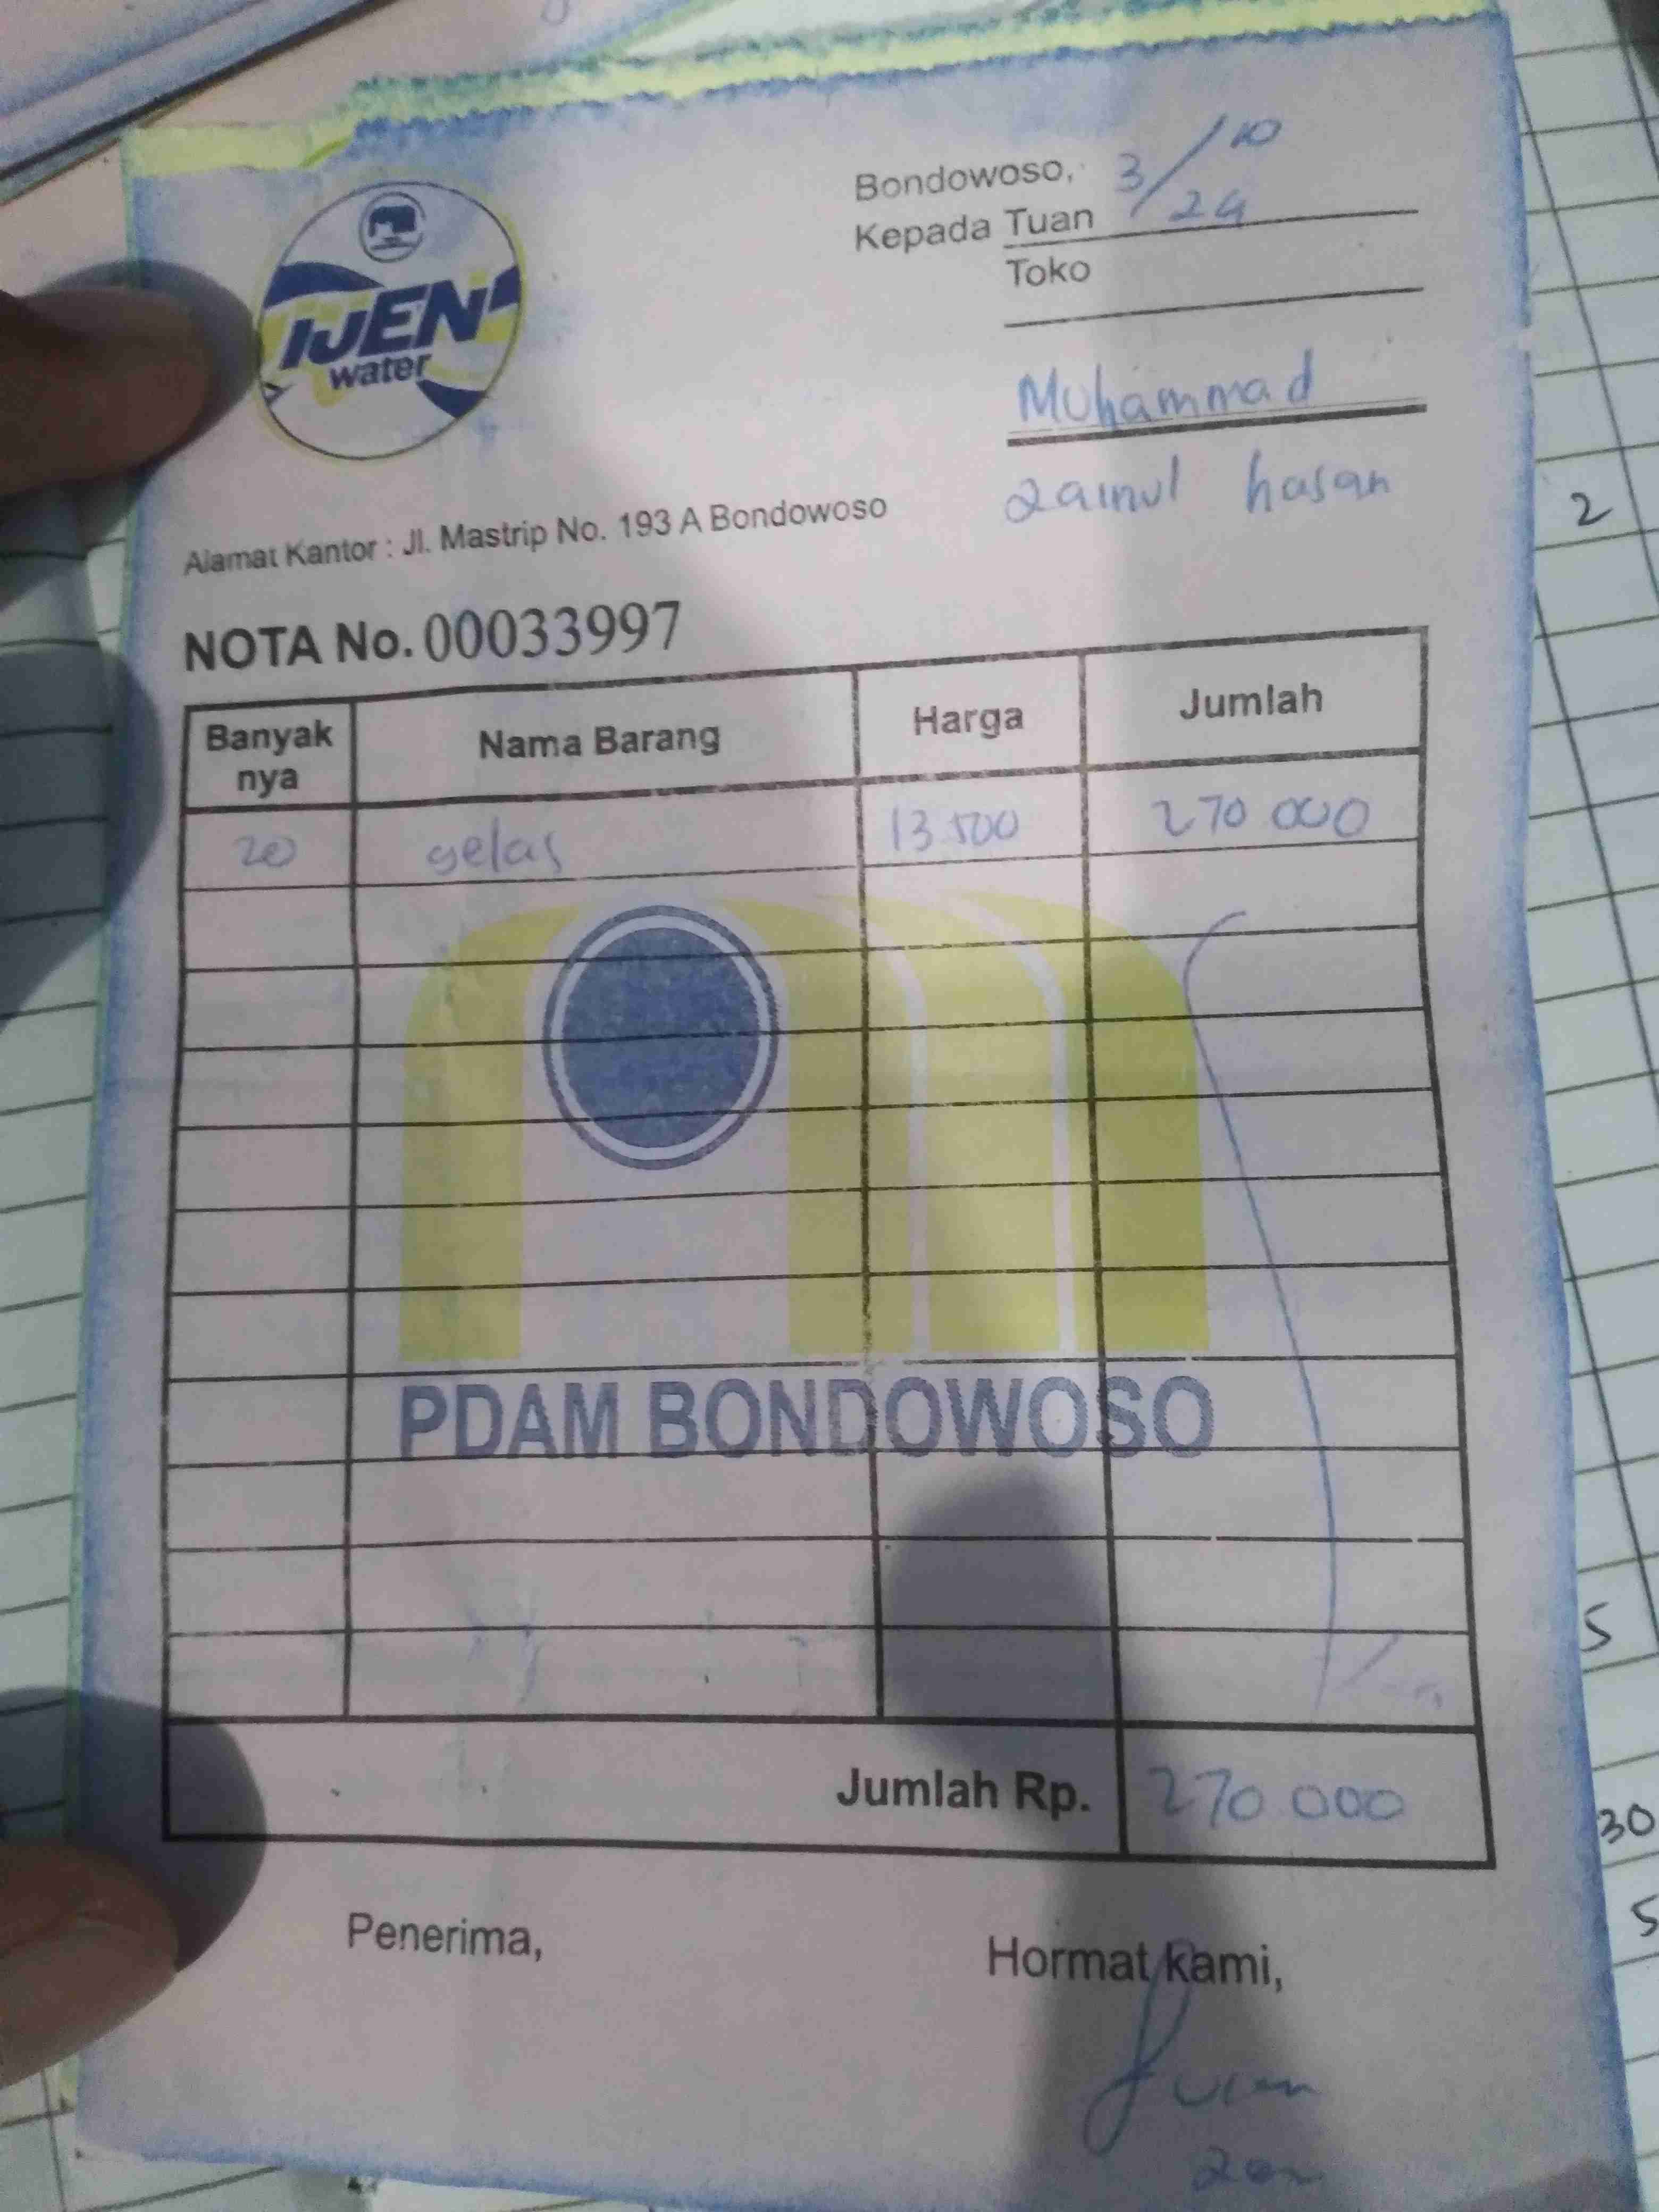 IJEN
water
Bondowoso, 3/10
Kepada Tuan 24
Toko
Muhammad
Zainul hasan
Alamat Kantor : Jl. Mastrip No. 193 A Bondowoso
NOTA No. 00033997
Banyak nya Nama Barang Harga Jumlah
20 gelas 13 500 270 000
PDAM BONDOWOSO
Jumlah Rp. 270 000
Penerima, Hormat kami,
2
5
30
5